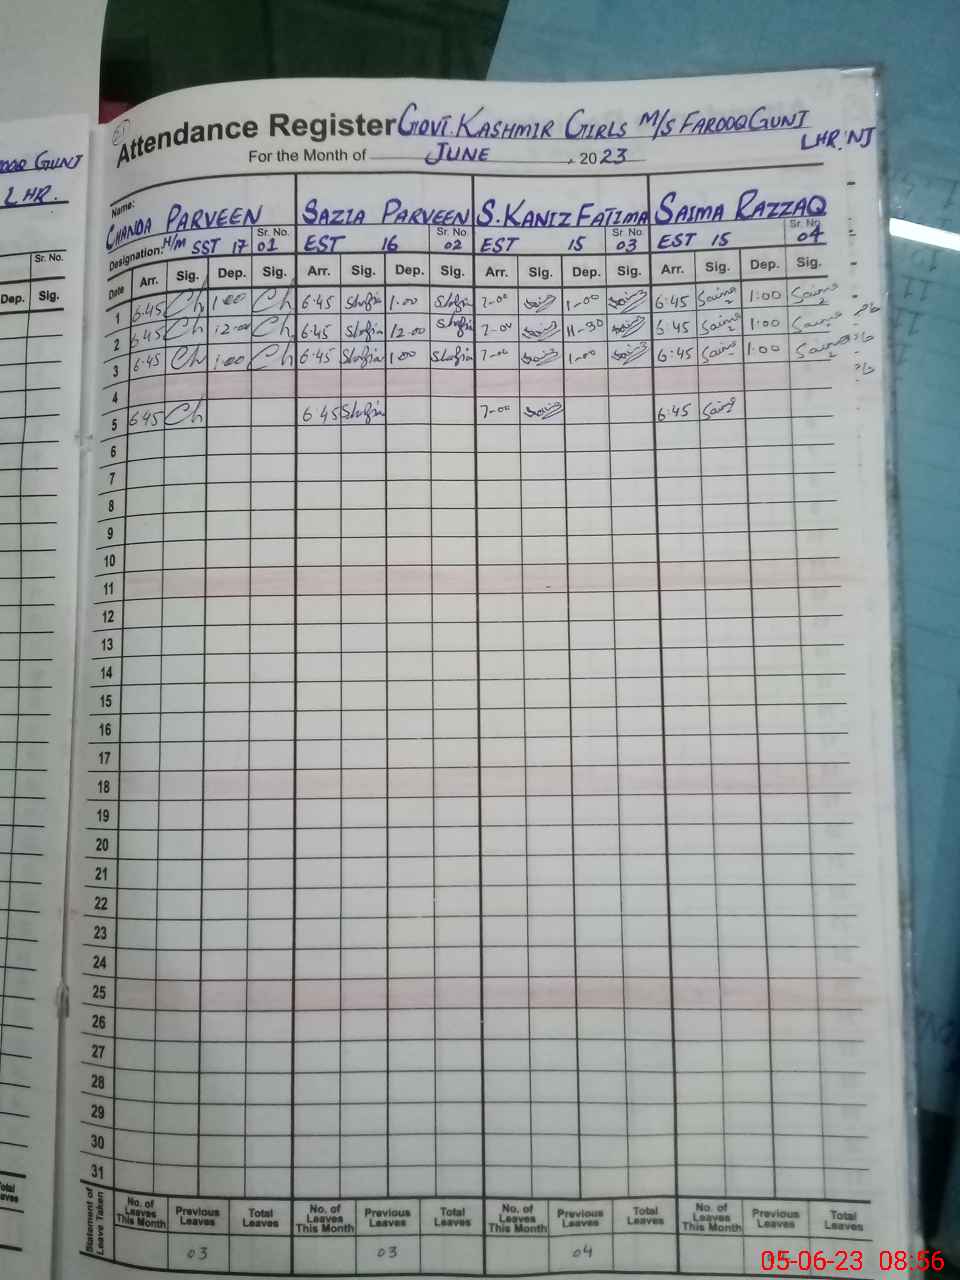 Attendance Register GOVT. KASHMIR GIRLS M/S FAROOQ GUNJ
LHR.
GUNJ
LHR.
For the Month of JUNE , 2023
Name:
CHANDA PARVEEN SAZIA PARVEEN S. KANIZ FATIMA SAIMA RAZZAQ
Designation: H/M SST 17 Sr. No. 01 EST 16 Sr. No. 02 EST 15 Sr. No. 03 EST 15 Sr. No. 04
Sr. No.
Dep. Sig.
Date Arr. Sig. Dep. Sig. Arr. Sig. Dep. Sig. Arr. Sig. Dep. Sig. Arr. Sig. Dep. Sig.
1 6:45 Ch 1:00 Ch 6:45 1:00 7-00 1-00 6:45 Saima 1:00 Saima
2 6:45 Ch 12:00 Ch 6:45 12:00 7-00 11-30 6:45 Saima 1:00 Saima
3 6:45 Ch 1:00 Ch 6:45 1:00 7-00 1-00 6:45 Saima 1:00 Saima
4
5 6:45 Ch 6:45 7-00 6:45 Saima
6
7
8
9
10
11
12
13
14
15
16
17
18
19
20
21
22
23
24
25
26
27
28
29
30
31
Statement of Leave Taken No. of Leaves This Month Previous Leaves Total Leaves No. of Leaves This Month Previous Leaves Total Leaves No. of Leaves This Month Previous Leaves Total Leaves No. of Leaves This Month Previous Leaves Total Leaves
03 03 04
05-06-23 08:56